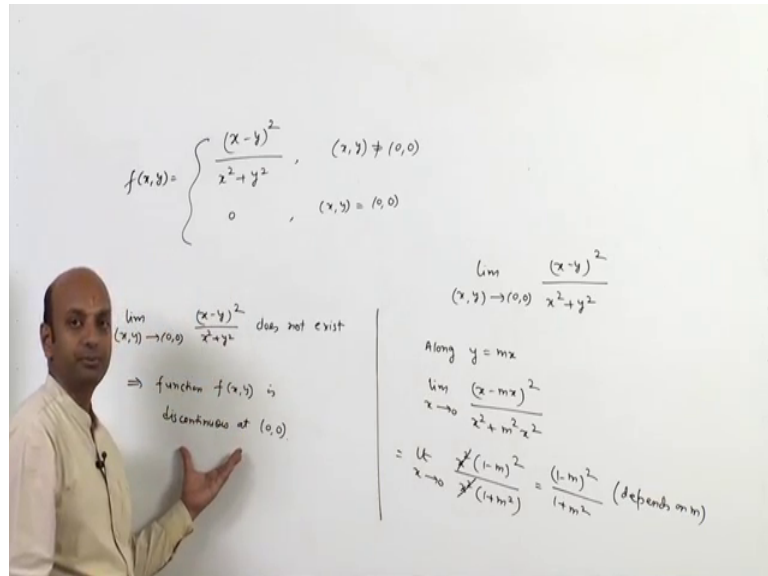 f(x,y) = { (x-y)² / x²+y² , (x,y) ≠ (0,0)
0 , (x,y) = (0,0)
lim (x,y)→(0,0) (x-y)² / x²+y² does not exist
⇒ function f(x,y) is
discontinuous at (0,0).
lim (x,y)→(0,0) (x-y)² / x²+y²
Along y = mx
lim x→0 (x-mx)² / x²+m²x²
= lt x→0 x²(1-m)² / x²(1+m²) = (1-m)² / 1+m² (depends on m)